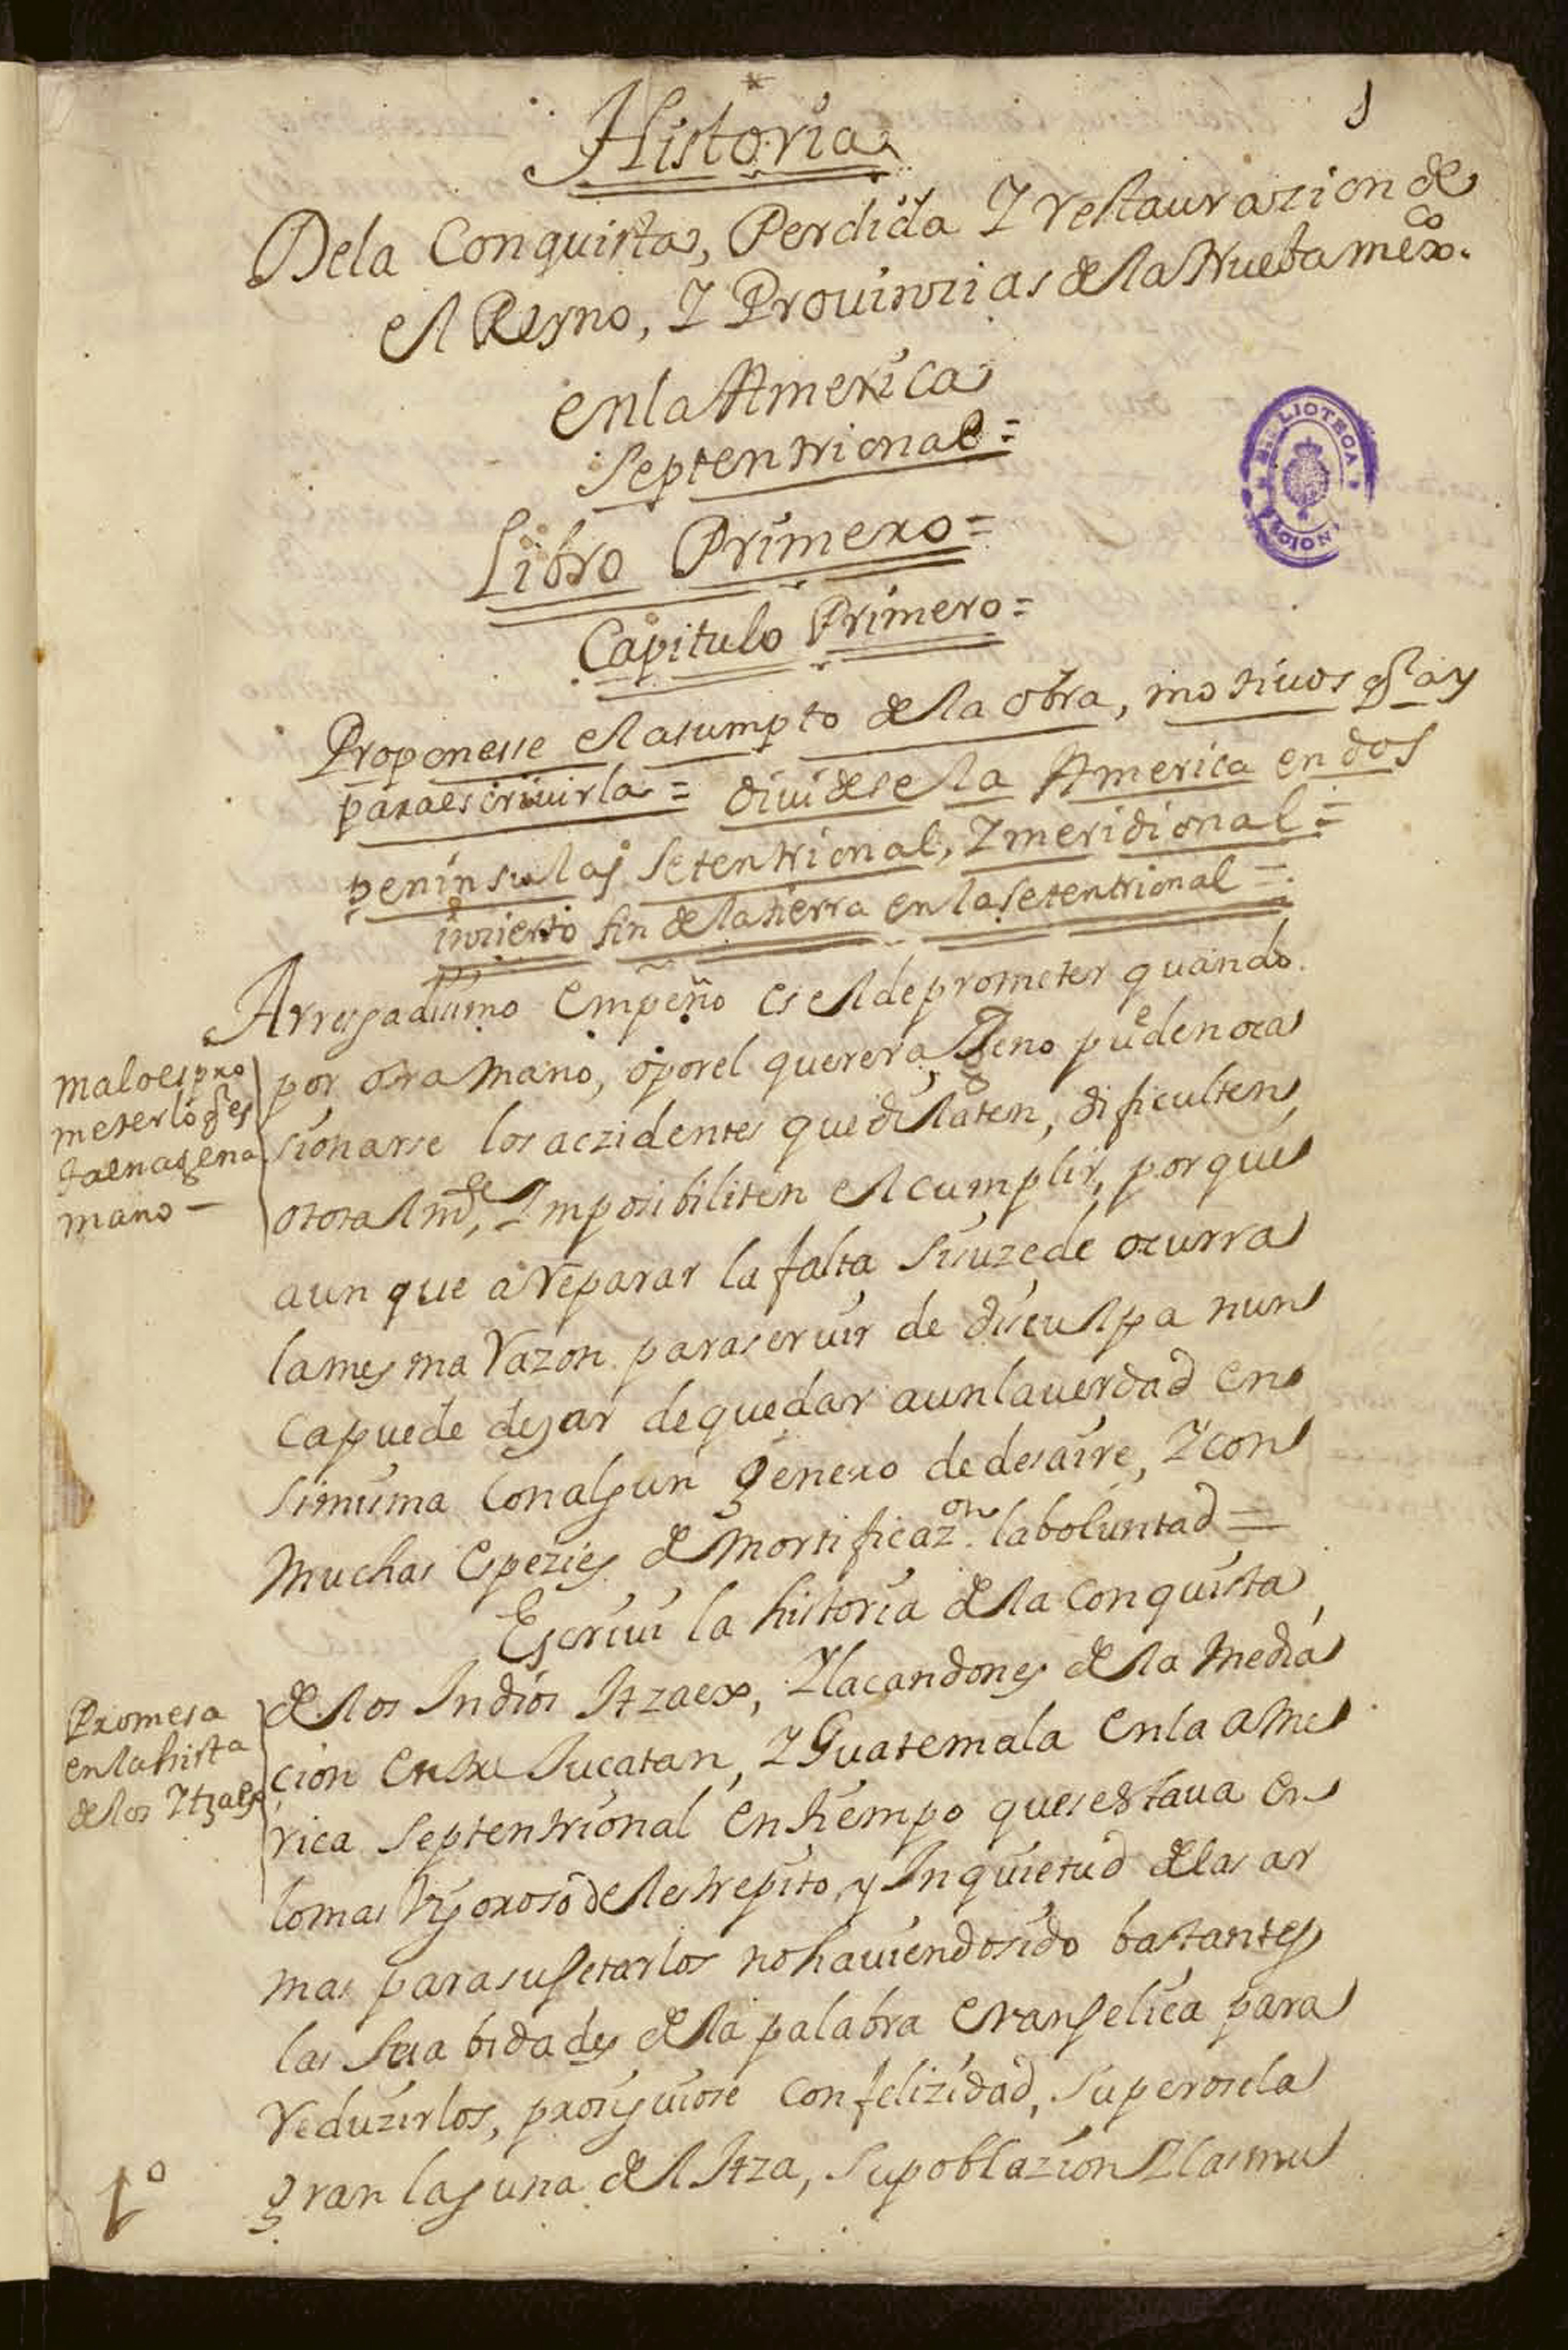 1
Historia
Dela Conquista, Perdida Y restaurazion de
el Reyno, Y Provinzias de la Nueba mexco.
en la America
Septentrional =
Libro Primero =
Capitulo Primero =
Proponesse el asumpto de la obra, motivos q ay
para escrivirla = dividese la America en dos
peninsulas Setentrional, Y meridional =
inzierto fin de la tierra en la Setentrional =
Arresgadissimo empeño es el de prometer quando
por otra mano, o por el querer ageno pueden oca
sionarse los aczidentes que dilaten, dificulten,
o totalmte, Imposibiliten el cumplir, porque
aun que a reparar la falta si suzede ocurra
la mesma razon para servir de disculpa nun
ca puede dejar de quedar aun la verdad en
si misma con algun genero de desaire, Y con
muchas espezies de mortificazon la boluntad =
Escrivi la historia de la conquista
de los Indios Itzaex, Y lacandones de la media
cion entre Yucatan, Y Guatemala en la ame
rica Septentrional en tiempo que se estava en
lo mas rigoroso de el estrepito, y Inquietud de las ar
mas para sugetarlos no haviendo sido bastantes
las suabidades de la palabra evangelica para
reduzirlos, prosiguiose con felizidad, superose la
gran laguna de el Itza, su poblazion Y las mu
malo es pro
meter lo q es
ta en agena
mano —
Promesa
en la hista
de los Ytzaex
1o
BIBLIOTECA
NACIONAL